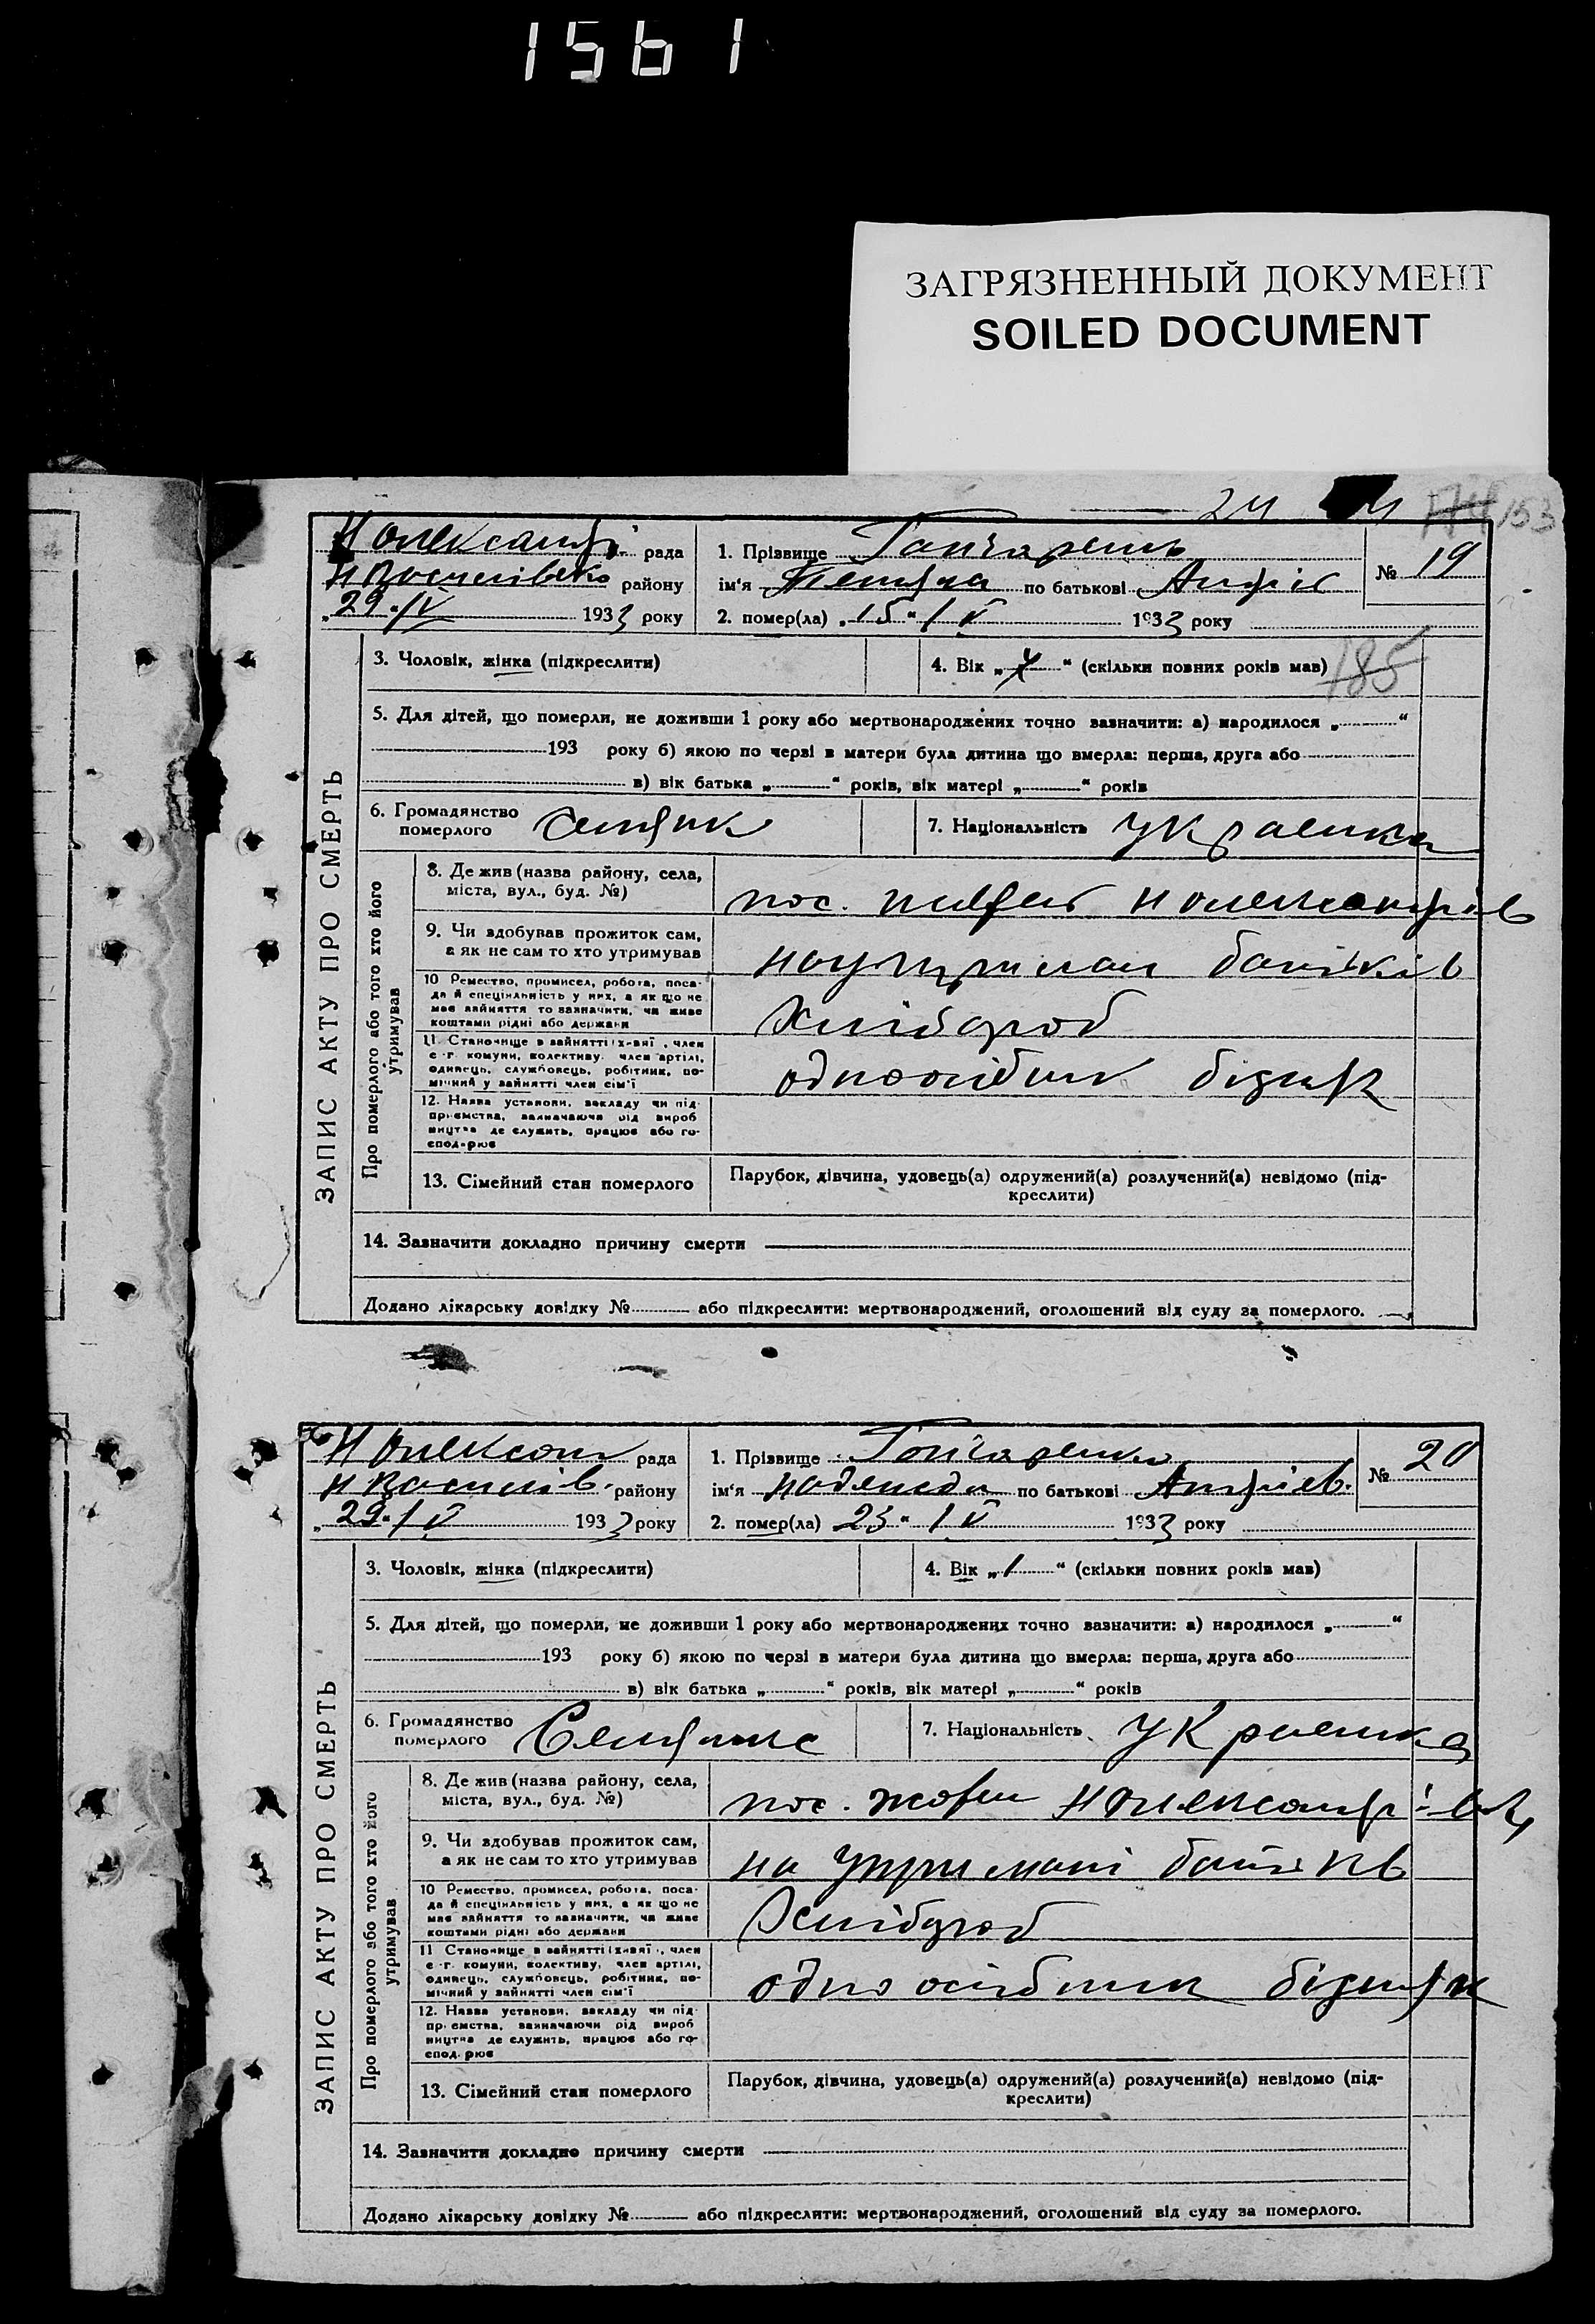 1561
ЗАГРЯЗНЕННЫЙ ДОКУМЕНТ
SOILED DOCUMENT
24
153
ЗАПИС АКТУ ПРО СМЕРТЬ
Н Олександр рада
Н Василівсько району
"29" IV 1933 року
1. Прізвище Гончаренко
ім'я Тетяна по батькові Андрів
2. помер(ла) "15" IV 1933 року
№ 19
3. Чоловік, жінка (підкреслити)
4. Вік „4“ (скільки повних років мав)
185
5. Для дітей, що померли, не доживши 1 року або мертвонароджених точно зазначити: а) народилося „ “
193 року б) якою по черзі в матери була дитина що вмерла: перша, друга або
в) вік батька „ “ років, вік матері „ “ років
6. Громадянство померлого Селянин
7. Національність Украенка
Про померлого або того хто його утримував
8. Де жив (назва району, села,
міста, вул., буд. №)
пос. Н Олександрів
9. Чи здобував прожиток сам,
а як не сам то хто утримував
на утриман батьків
10 Ремество, промисел, робота, поса-
да й спеціяльність у них, а як що не
має зайняття то зазначити, чи живе
коштами рідні або держави
Хлібороб
11. Становище в зайнятті (хазяї, член
с.-г. комуни, колективу, член артілі,
одинець, службовець, робітник, по-
мічний у зайнятті член сім'ї
одноосібник бідняк
12. Назва установи, закладу чи під-
приємства, зазначаючи рід вироб
ництва де служить, працює або го-
сподарює
13. Сімейний стан померлого
Парубок, дівчина, удовець(а) одружений(а) розлучений(а) невідомо (під-
креслити)
14. Зазначити докладно причину смерти
Додано лікарську довідку № або підкреслити: мертвонароджений, оголошений від суду за померлого.
ЗАПИС АКТУ ПРО СМЕРТЬ
Н Олександ рада
Н Василів. району
"29" IV 1933 року
1. Прізвище Гончаренко
ім'я Надежда по батькові Андріев.
2. помер(ла) 23 " IV 1933 року
№ 20
3. Чоловік, жінка (підкреслити)
4. Вік „1“ (скільки повних років мав)
5. Для дітей, що померли, не доживши 1 року або мертвонароджених точно зазначити: а) народилося „ “
193 року б) якою по черзі в матери була дитина що вмерла: перша, друга або
в) вік батька „ “ років, вік матері „ “ років
6. Громадянство померлого Селянин
7. Національність Украенка
Про померлого або того хто його утримував
8. Де жив (назва району, села,
міста, вул., буд. №)
пос. Жовтн Н Олександрів
9. Чи здобував прожиток сам,
а як не сам то хто утримував
на утримані батьків
10 Ремество, промисел, робота, поса-
да й спеціяльність у них, а як що не
має зайняття то зазначити, чи живе
коштами рідні або держави
Хлібороб
11 Становище в зайнятті (хазяї, член
с.-г. комуни, колективу, член артілі,
одинець, службовець, робітник, по-
мічний у зайнятті член сім'ї
одноосібник бідняк
12. Назва установи, закладу чи під-
приємства, зазначаючи рід вироб
ництва де служить, працює або го-
сподарює
13. Сімейний стан померлого
Парубок, дівчина, удовець(а) одружений(а) розлучений(а) невідомо (під-
креслити)
14. Зазначити докладно причину смерти
Додано лікарську довідку № або підкреслити: мертвонароджений, оголошений від суду за померлого.